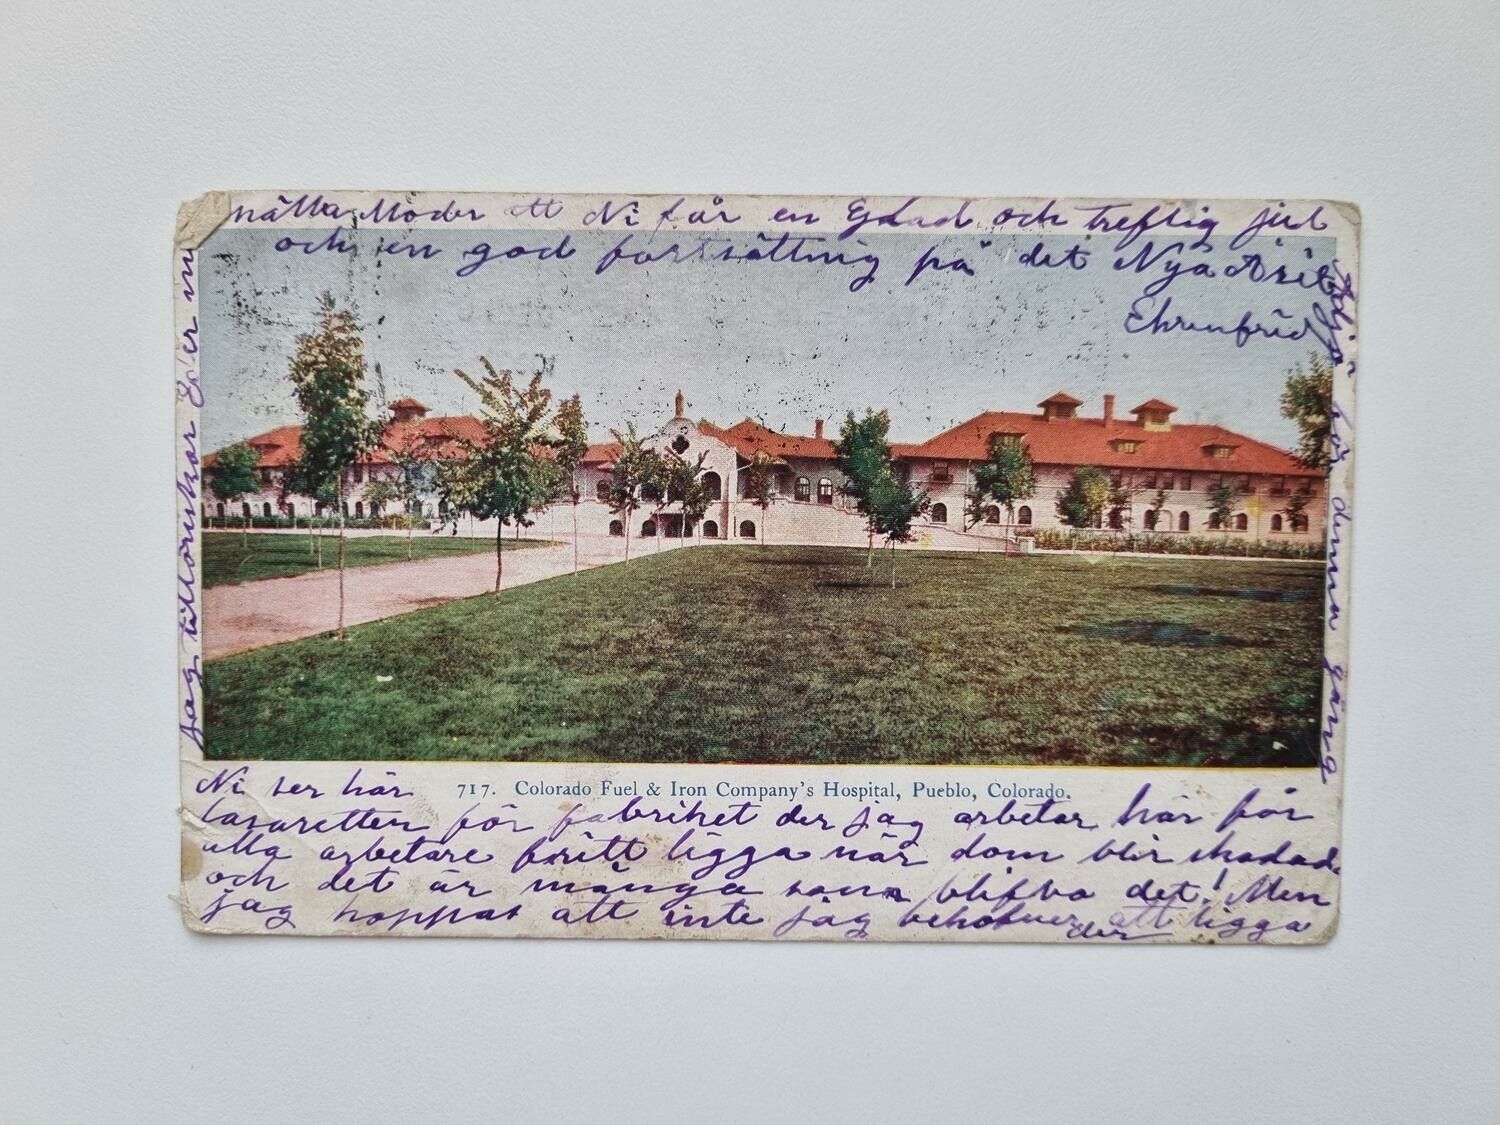 Jag tillönskar Eder min
snälla Moder att Ni får en Glad och treflig jul
och en god fortsättning på det Nya Året
Ehrenfrid
717. Colorado Fuel & Iron Company's Hospital, Pueblo, Colorado.
Ni ser här
lasaretten för fabriket der jag arbetar här får
alla arbetare fritt ligga när dom blir skadad
och det är många som blifva det! Men
jag hoppas att inte jag behöfver att ligga
der
här denna gång